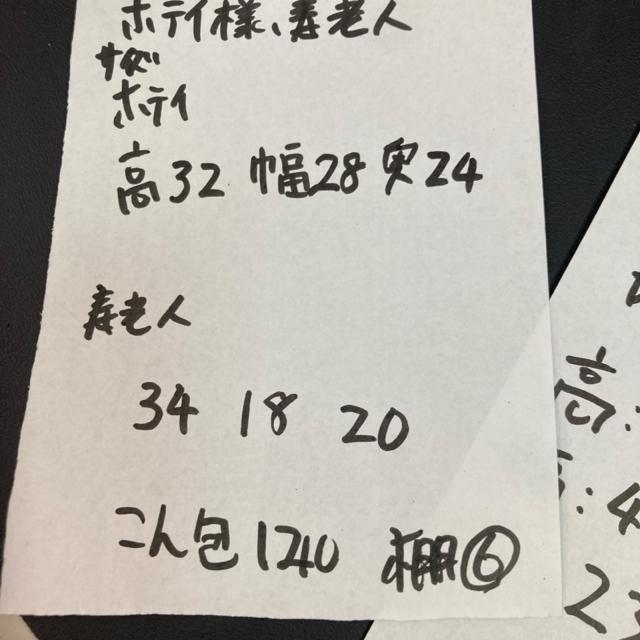 ホテイ様、寿老人
サイズ
ホテイ
高32 幅28 奥24
寿老人
34 18 20
こん包140 棚⑥
高:
: 4
2